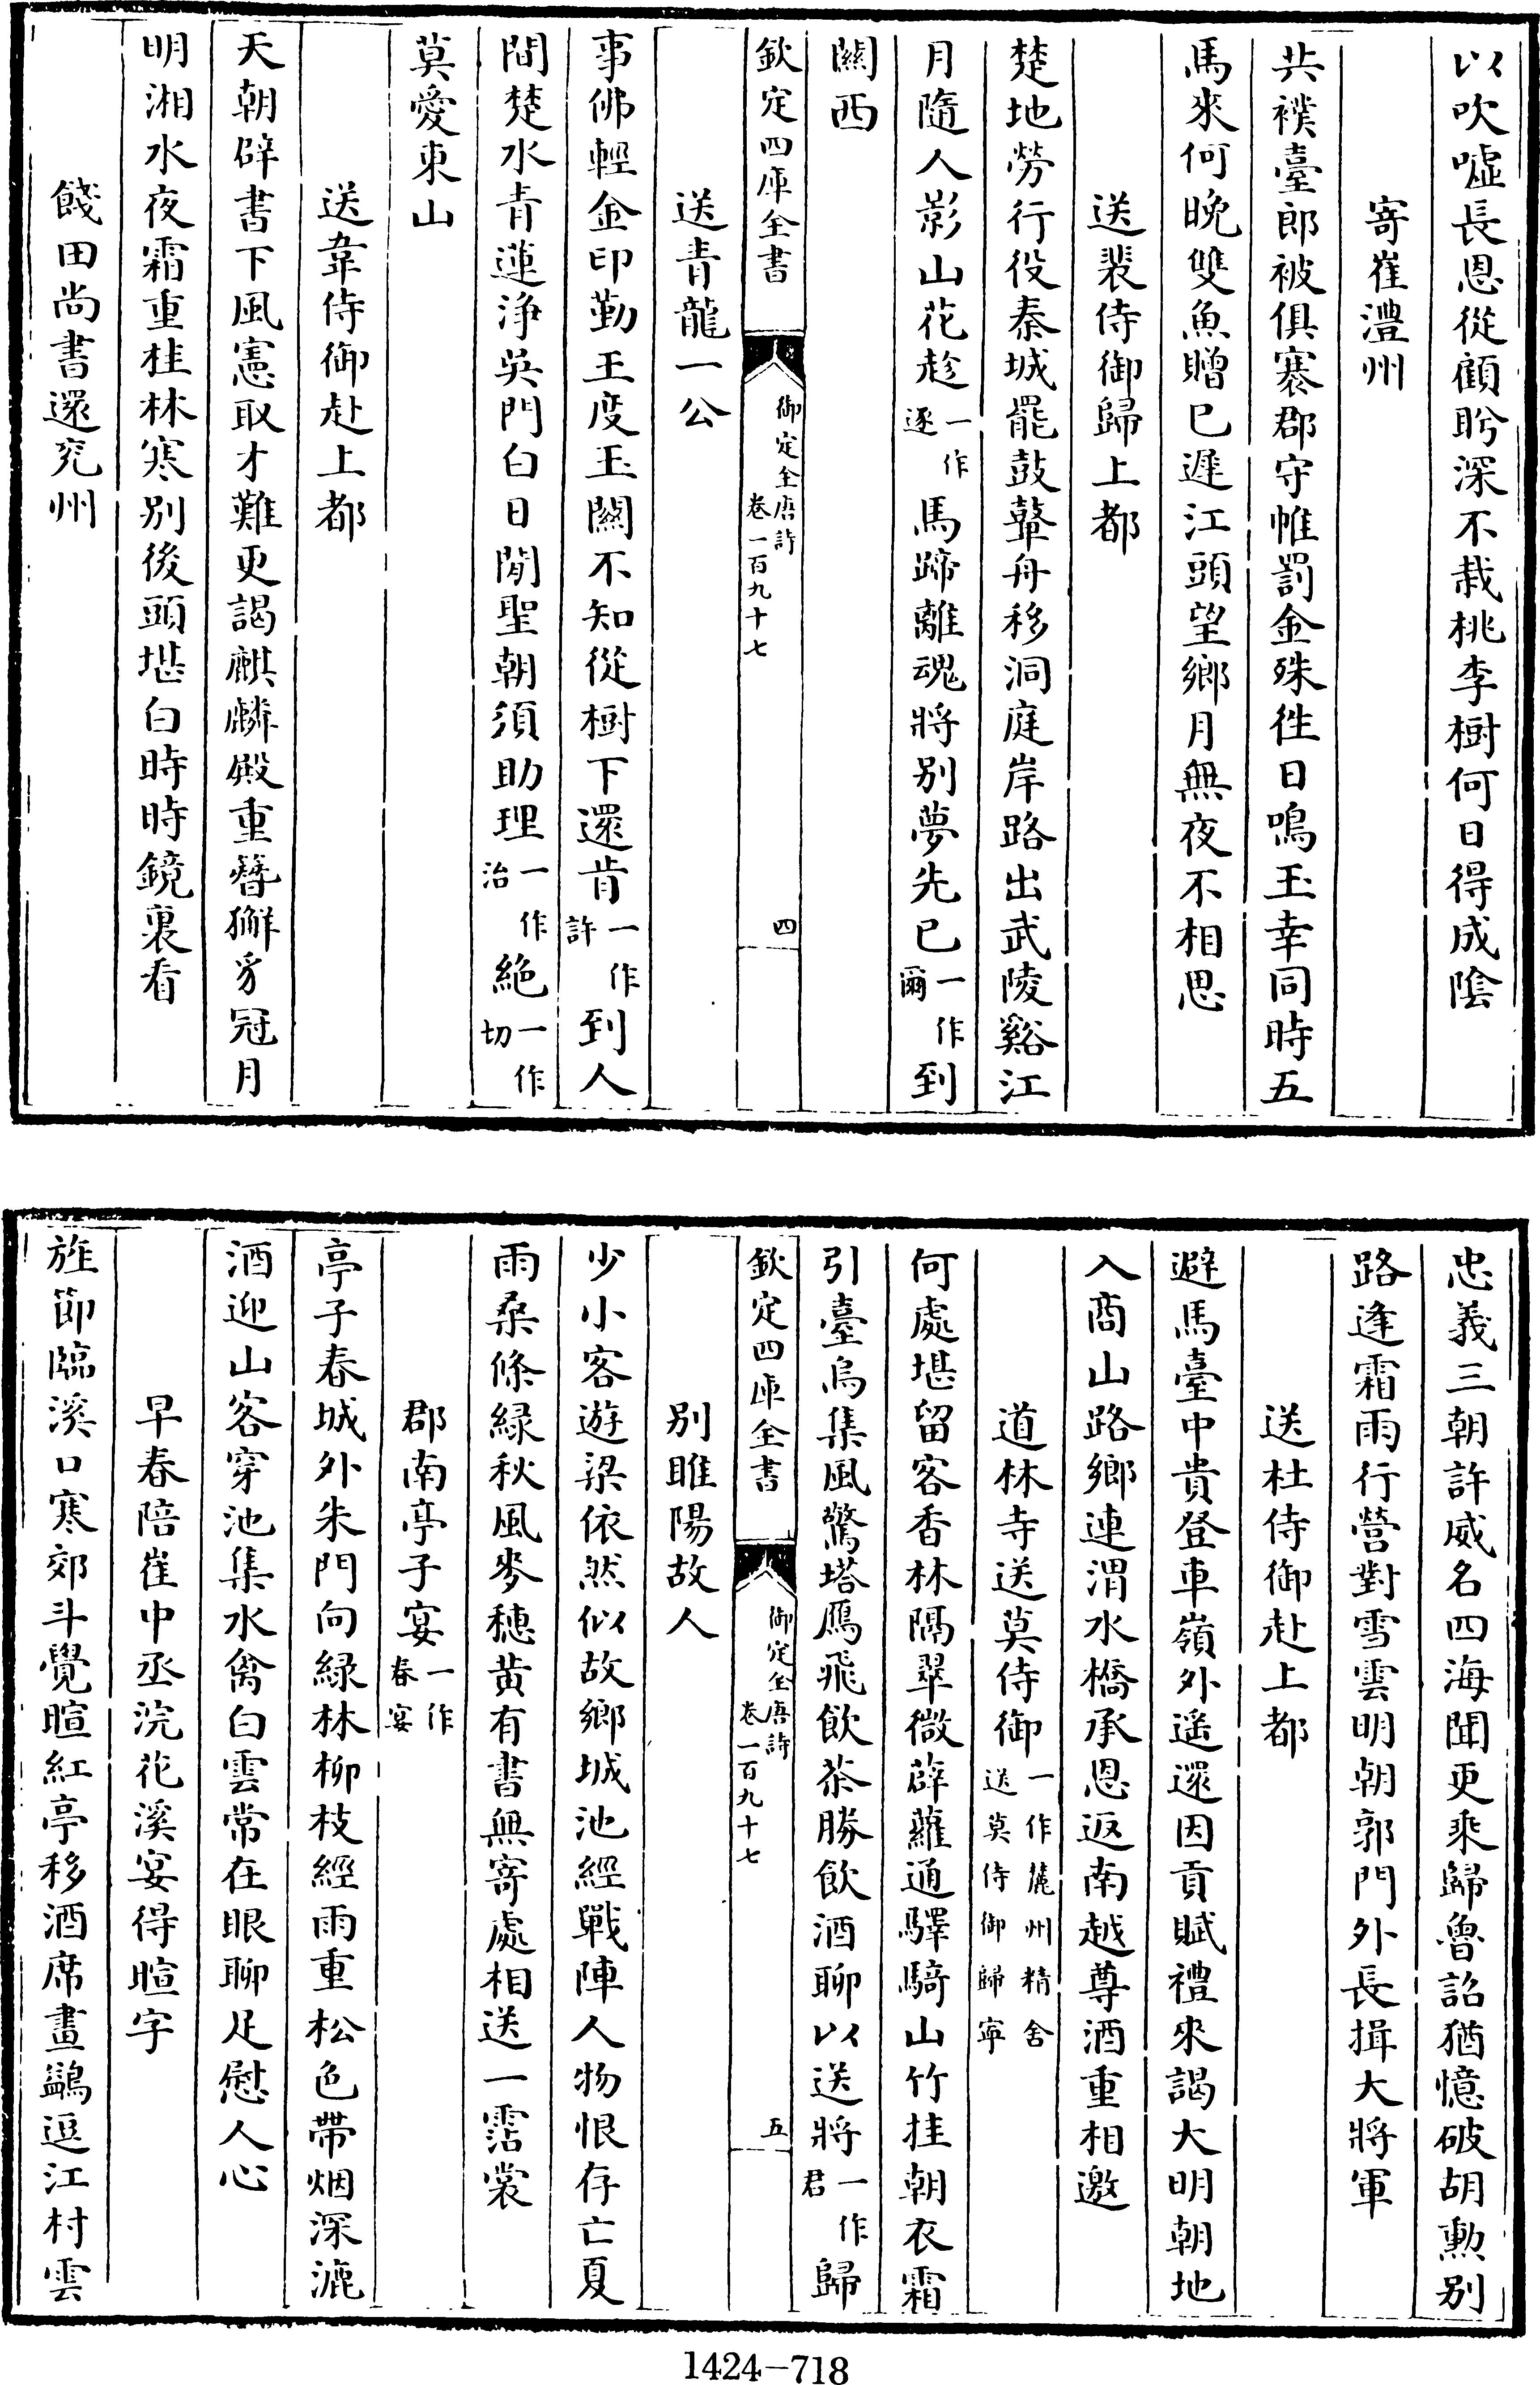 以吹噓長恩從顧盻深不栽桃李樹何日得成隂
寄崔澧州
共襆臺郎被俱褰郡守帷罰金殊徃日鳴玉幸同時五
馬來何晚雙魚贈已遲江頭望鄉月無夜不相思
送裴侍御歸上都
楚地勞行役秦城罷鼓鼙舟移洞庭岸路出武陵谿江
月隨人影山花趁一作逐馬蹄離魂將别夢先已一作爾到
關西
欽定四庫全書 御定全唐詩卷一百九十七 四
送青龍一公
事佛輕金印勤王度玉關不知從樹下還肯一作許到人
間楚水青蓮淨吳門白日閒聖朝須助理一作治絶一作切
莫愛東山
送韋侍御赴上都
天朝辟書下風憲取才難更謁麒麟殿重簪獬豸冠月
明湘水夜霜重桂林寒别後頭堪白時時鏡裏看
餞田尚書還兖州
忠義三朝許威名四海聞更乘歸魯詔猶憶破胡勲别
路逢霜雨行營對雪雲明朝郭門外長揖大將軍
送杜侍御赴上都
避馬臺中貴登車嶺外遥還因貢賦禮來謁大明朝地
入商山路鄉連渭水橋承恩返南越尊酒重相邀
道林寺送莫侍御一作麓州精舍送莫侍御歸寜
何處堪留客香林隔翠微薜蘿通驛騎山竹挂朝衣霜
引臺烏集風驚塔鴈飛飲茶勝飲酒聊以送將一作君歸
欽定四庫全書 御定全唐詩卷一百九十七 五
别睢陽故人
少小客遊梁依然似故鄉城池經戰陣人物恨存亡夏
雨桑條緑秋風麥穗黄有書無寄處相送一霑裳
郡南亭子宴一作春宴
亭子春城外朱門向緑林柳枝經雨重松色帶烟深漉
酒迎山客穿池集水禽白雲常在眼聊足慰人心
早春陪崔中丞浣花溪宴得暄字
旌節臨溪口寒郊斗覺暄紅亭移酒席畫鷁逗江村雲
1424-718